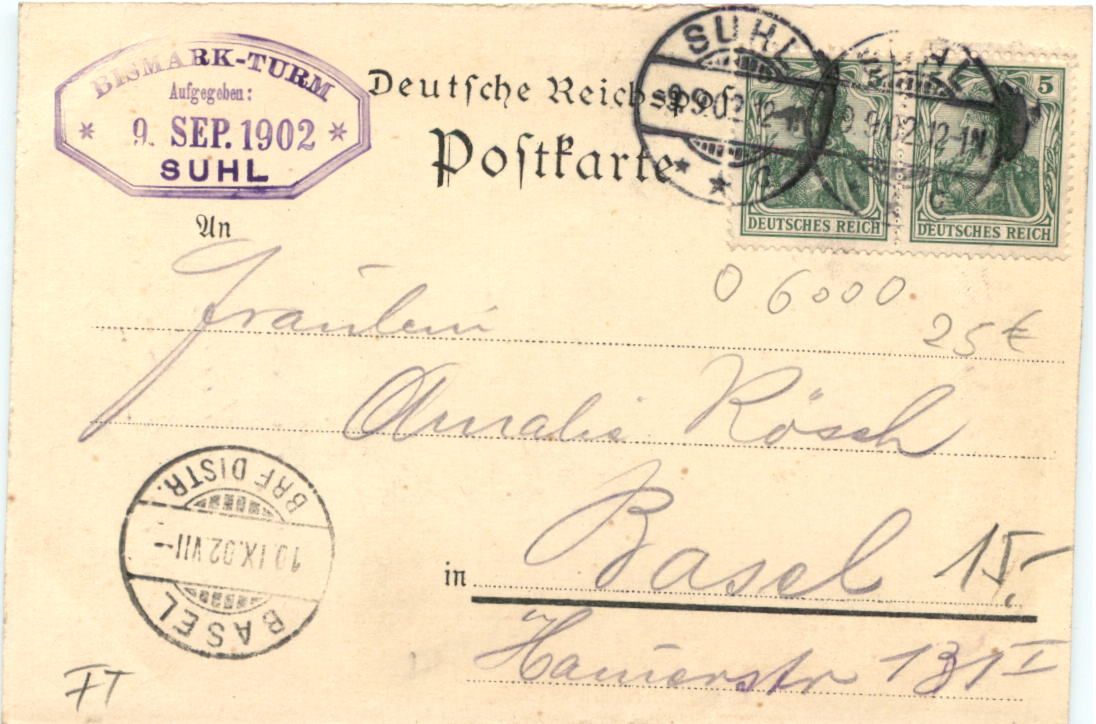 BISMARK-TURM
Aufgegeben:
* 9. SEP. 1902 *
SUHL
Deutsche Reichspost
Postkarte
SUHL
9.9.02.12-1N
* * a
SUHL
9.9.02.12-1N
* * c
DEUTSCHES REICH
5
DEUTSCHES REICH
An
0 6000
25€
Fräulein
Amalie Rösch
BASEL
10.IX.02.VII-
BRF. DISTR.
in Basel
15,-
131 I
FT